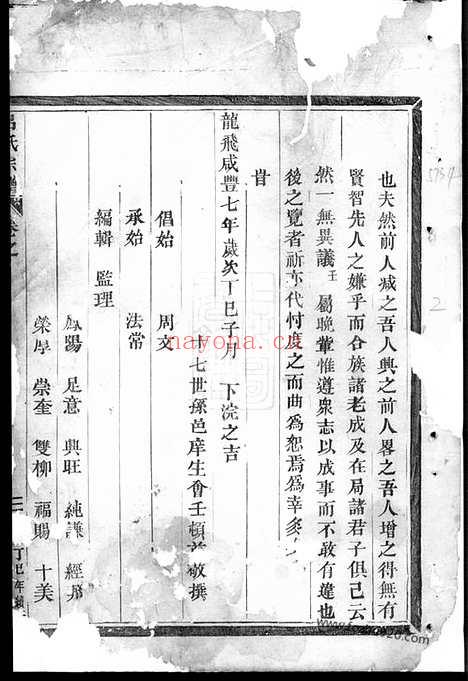 也夫然前人減之吾人興之前人畧之吾人增之得無有
賢智先人之嫌乎而合族諸老成及在局諸君子俱已云
然一無異議王屬晚輩惟遵眾志以成事而不敢有違也
後之覽者祈亦代忖度之而曲為恕焉為幸矣
旹
龍飛咸豐七年歲次丁巳子月下浣之吉
十七世孫邑庠生會壬頓首敬撰
倡始 周文
承始 法常
編輯 監理
鳳陽 足意 興旺 純謙 經
榮厚 崇奎 雙柳 福賜 十美
氏宗譜 卷之一
丁巳年
5734
2
nayona.cn